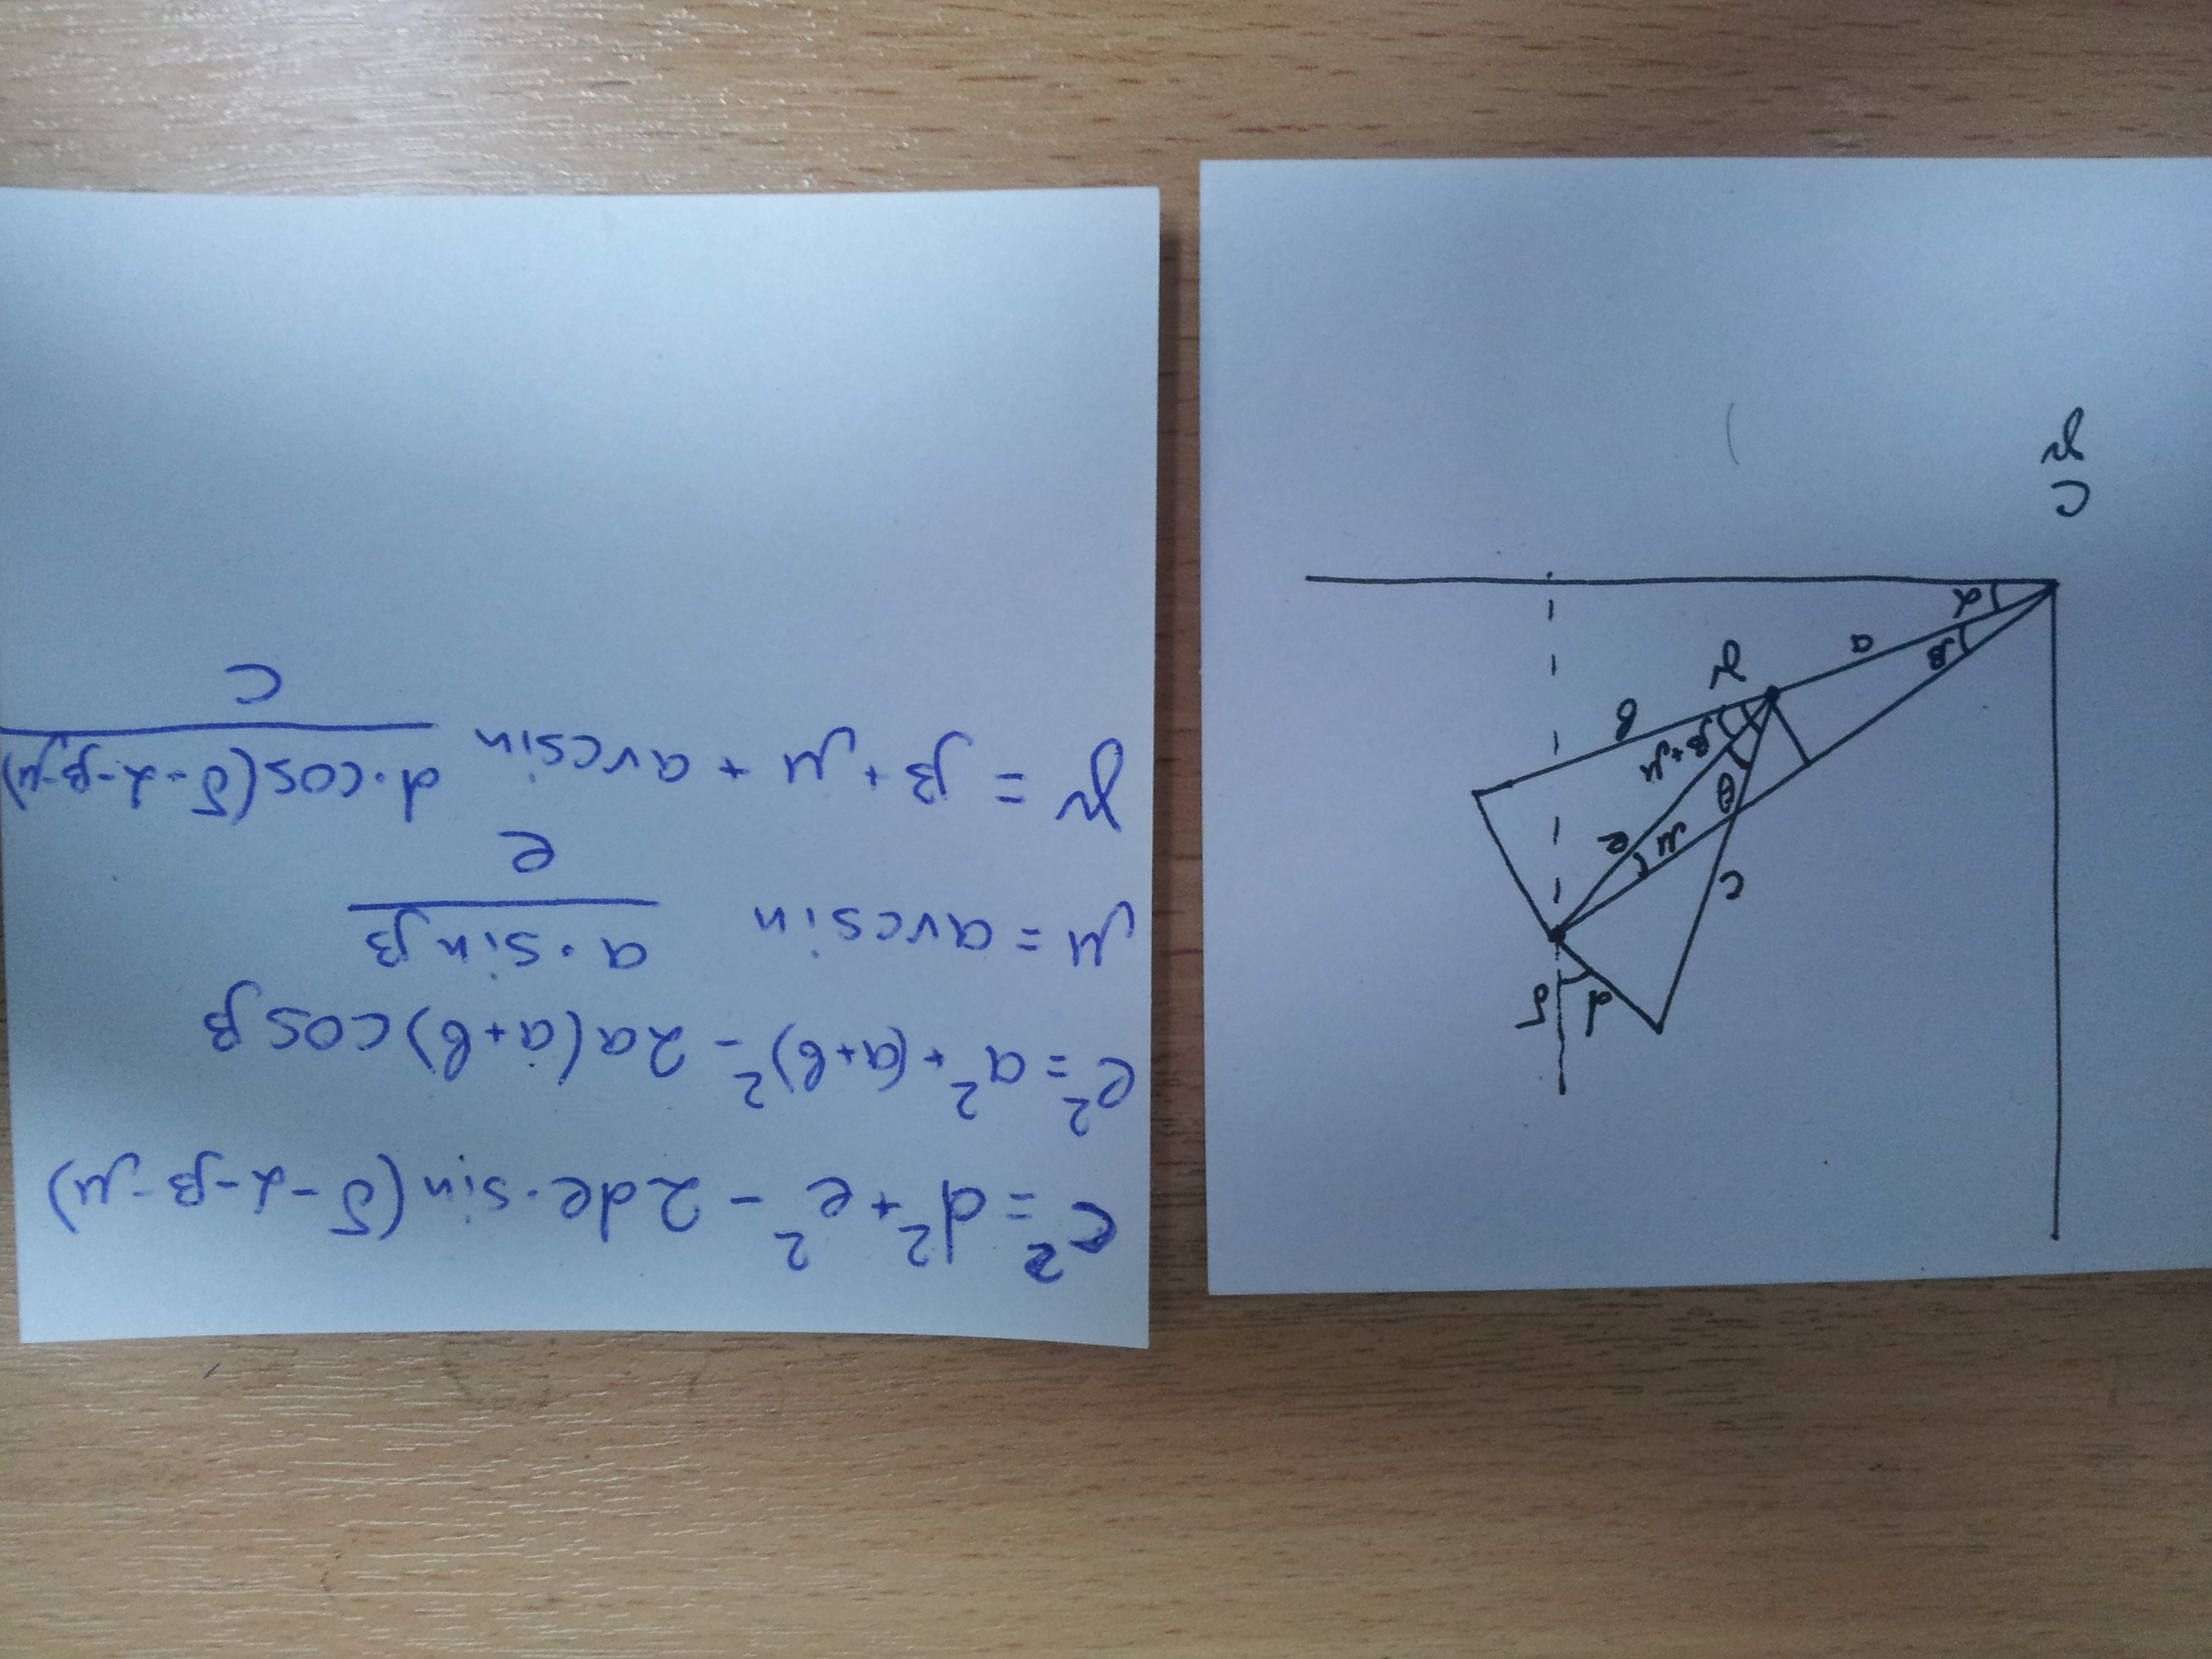 d
δ
c
μ
e
θ
β+μ
в
γ
β
a
α
c
γ
c² = d² + e² - 2de · sin(δ-α-β-μ)
e² = a² + (a+в)² - 2a(a+в) cos β
μ = arcsin a · sin β / e
γ = β + μ + arcsin d · cos(δ-α-β-μ) / c